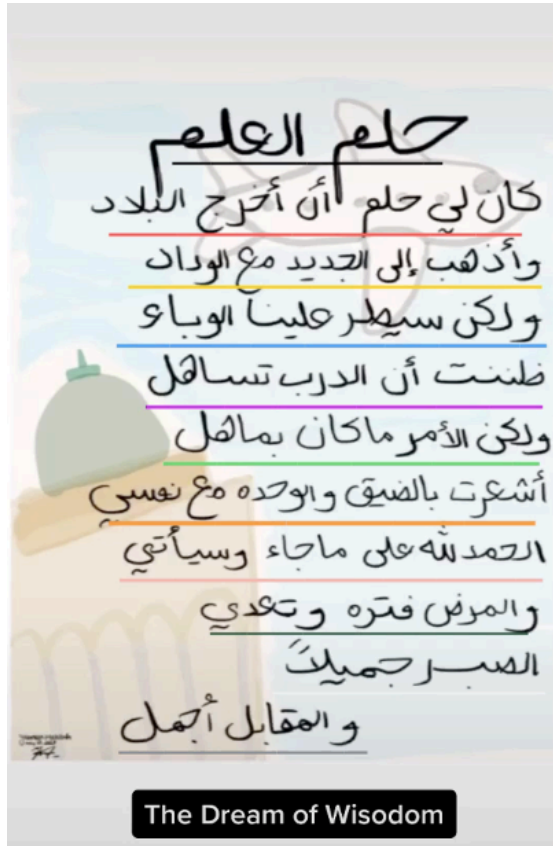 حلم العلم
كان لي حلم أن أخرج البلاد
وأذهب إلى الجديد مع الوداد
ولكن سيطر علينا الوباء
ظننت أن الدرب تساهل
ولكن الأمر ماكان بماهل
أشعرت بالضيق والوحده مع نفسي
الحمدلله على ماجاء وسيأتي
والمرض فتره وتعدي
الصبر جميلاً
والمقابل أجمل
The Dream of Wisodom